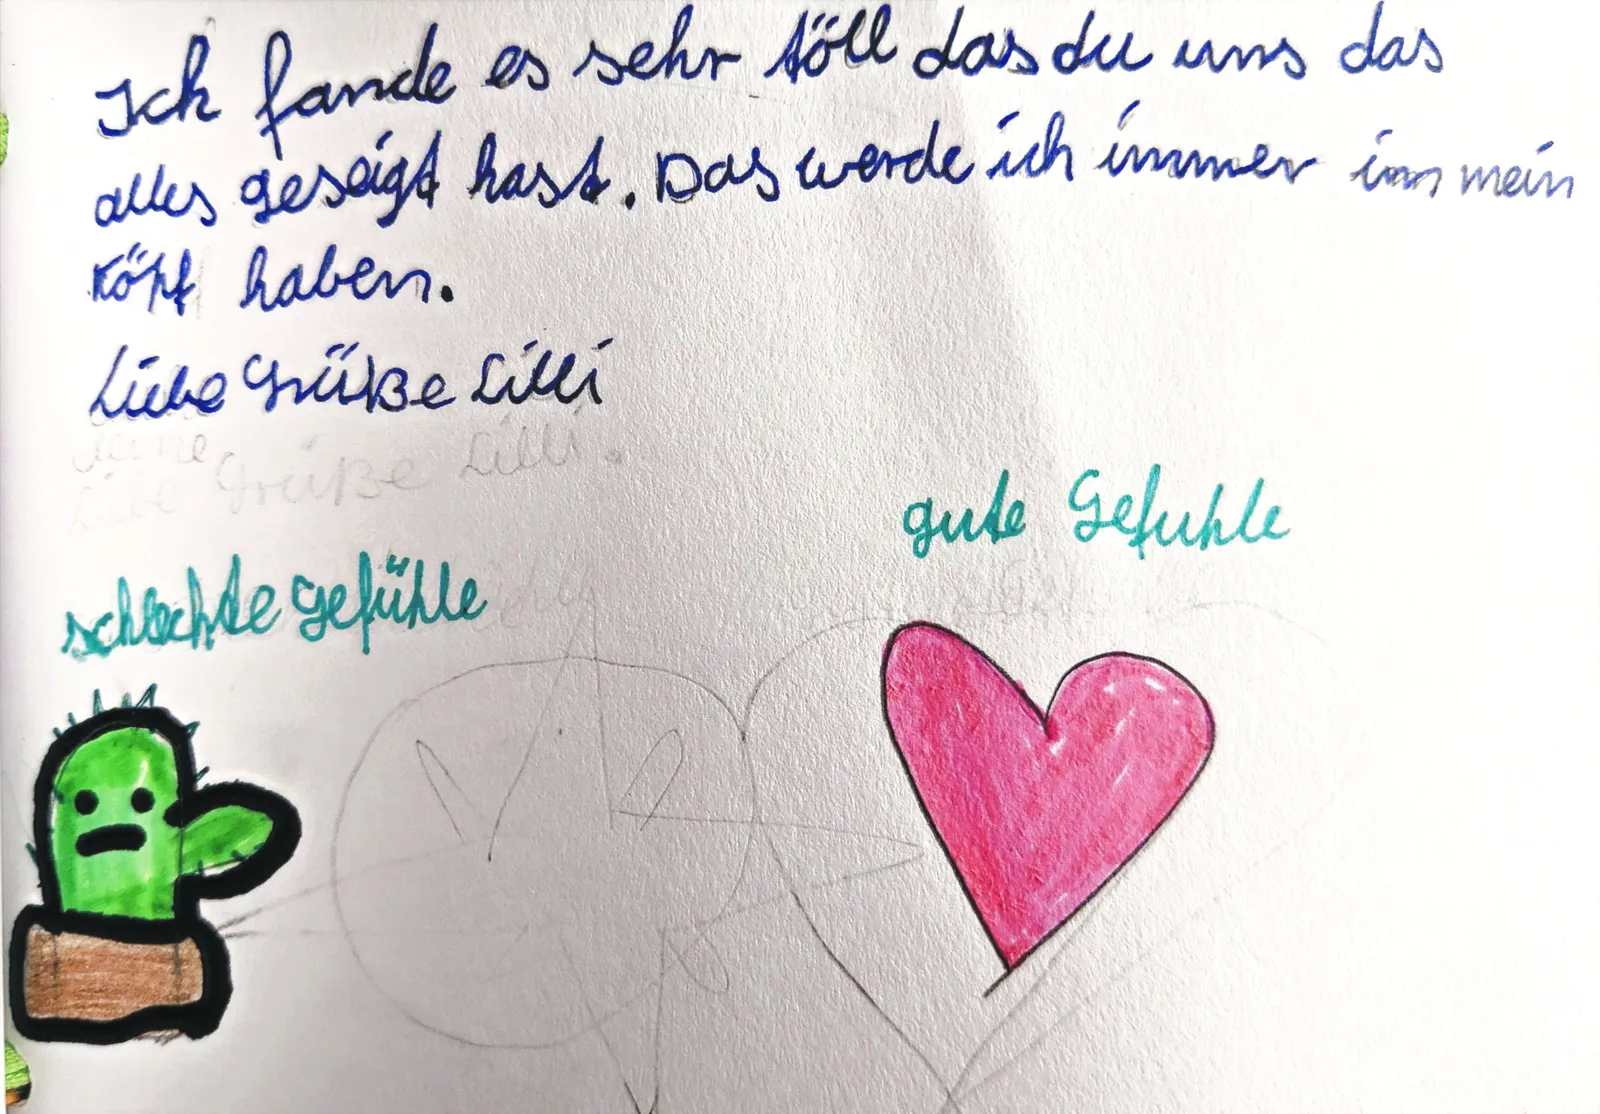 Ich fande es sehr töll das du uns das
alles geseigt hast. Das werde ich immer im mein
Köpf haben.
Liebe Grüße Lilli
Liebe Grüße Lilli.
gute Gefuhle
schlechte Gefühle